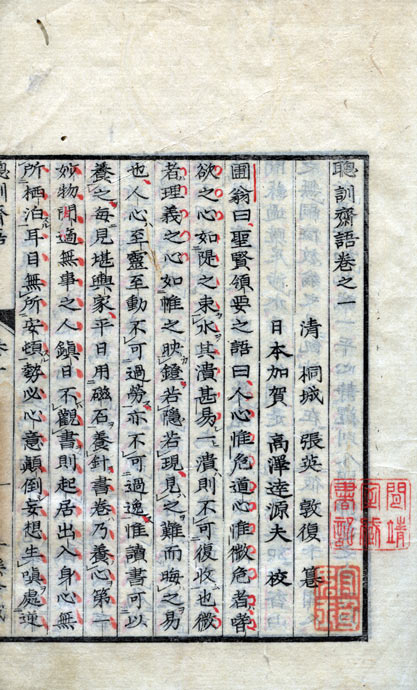 聰訓齋語卷之一
清 桐城 張英 敦復 篹
日本加賀 高澤達源夫 校
圃翁曰聖賢領要之語曰人心惟危道心惟微危者嗜
欲之心如隄之束水其潰甚易一潰則不可復收也微
者理義之心如帷之映鐙若隱若現見之難而晦之易
也人心至靈至動不可過勞亦不可過逸惟讀書可以
養之每見堪輿家平日用磁石養針書卷乃養心第一
妙物閒適無事之人鎮日不觀書則起居出入身心無
所栖泊耳目無所安頓勢必心意顛倒妄想生嗔處逆